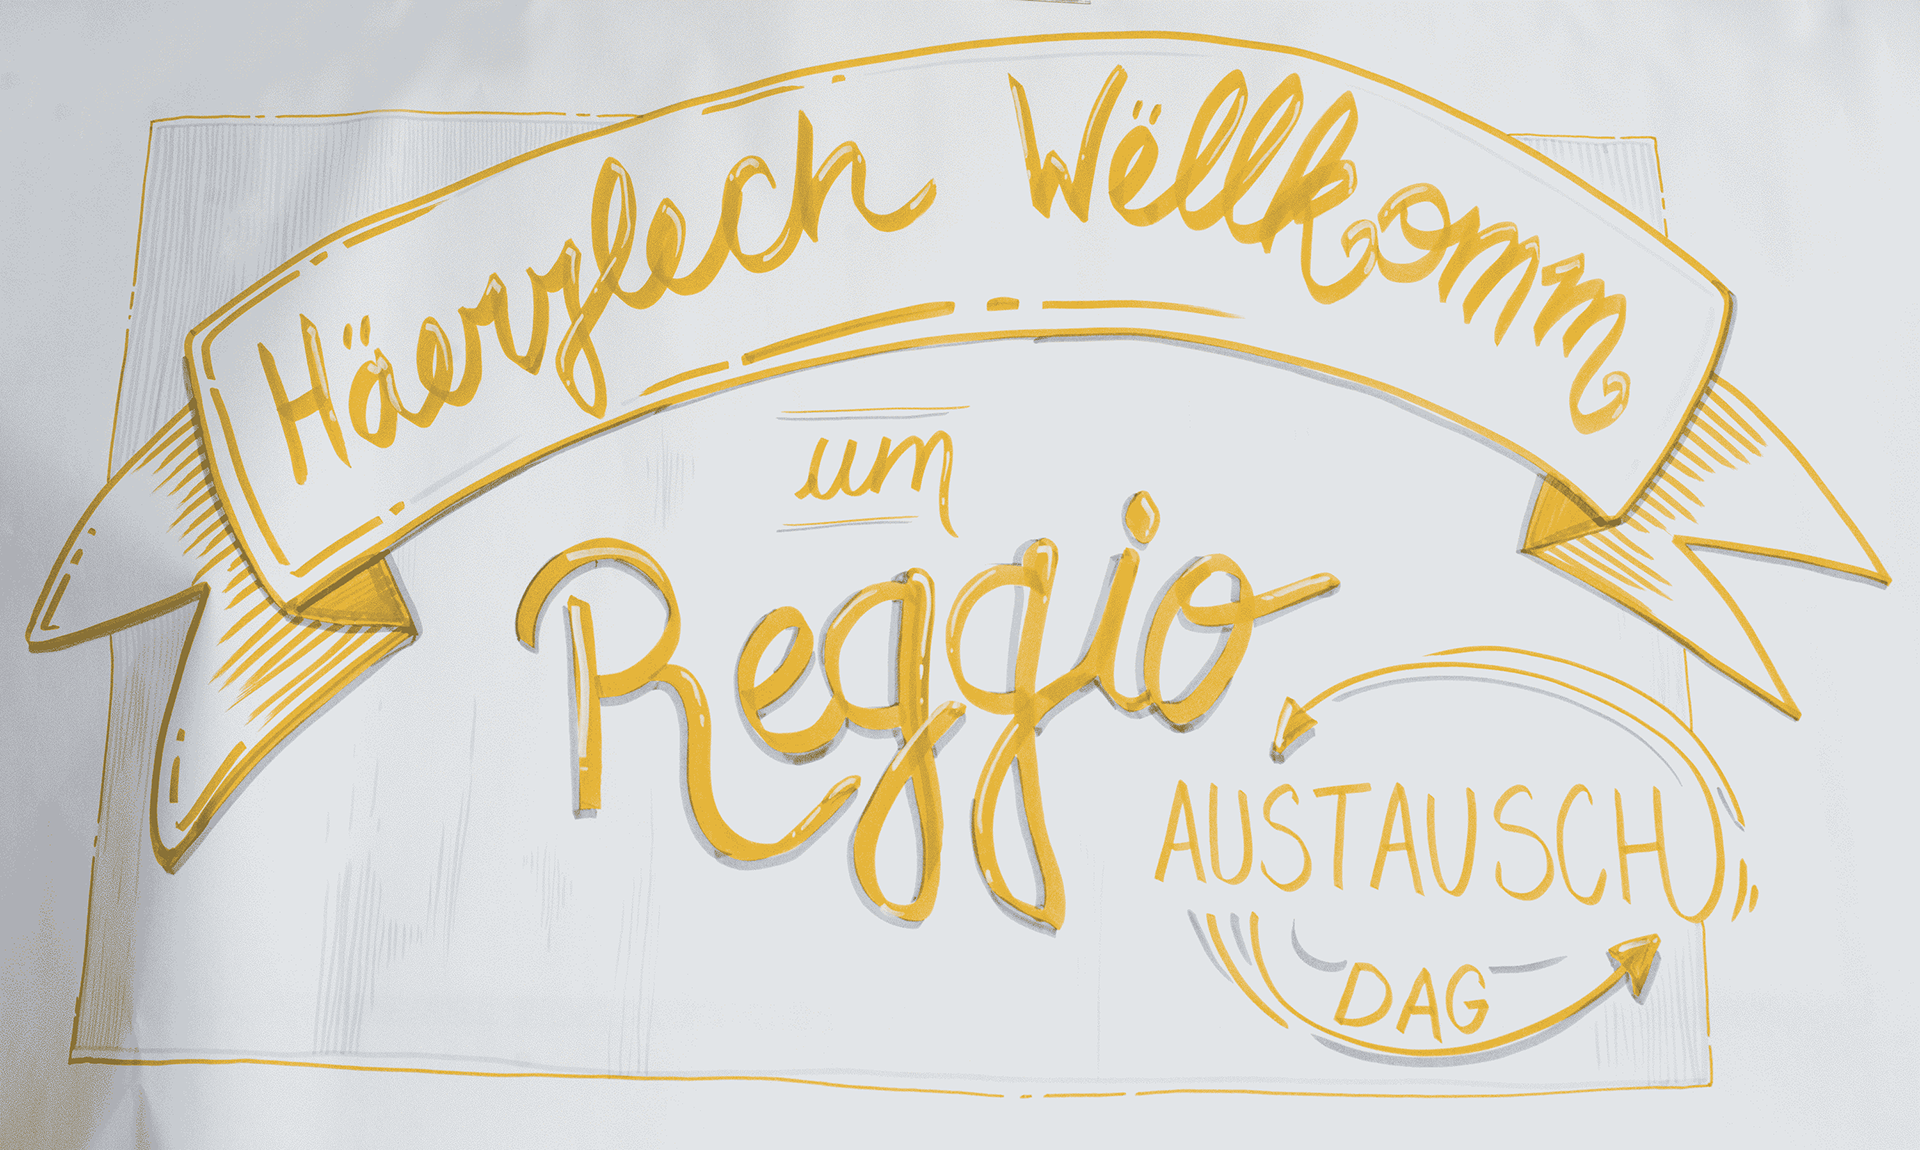 Häerzlech Wëllkomm
um
Reggio
AUSTAUSCH
DAG